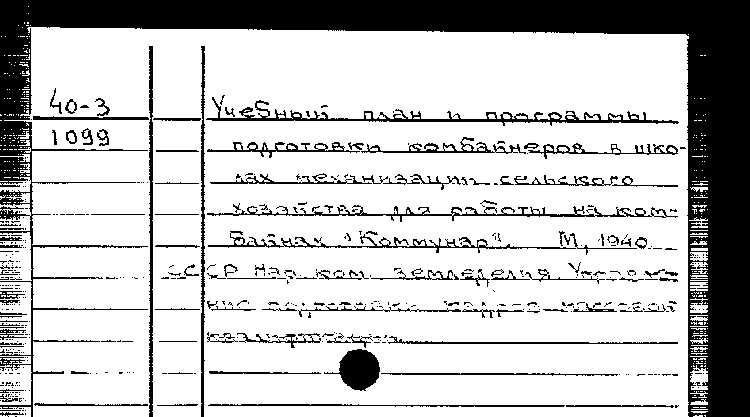 40-3
Учебный план и программы
1099
подготовки комбайнеров в шко-
лах механизации сельского
хозяйства для работы на ком-
байнах "Коммунар". М, 1940
СССР Нар. ком. земледелия. Управле-
ние подготовки кадров массовой
квалификации.